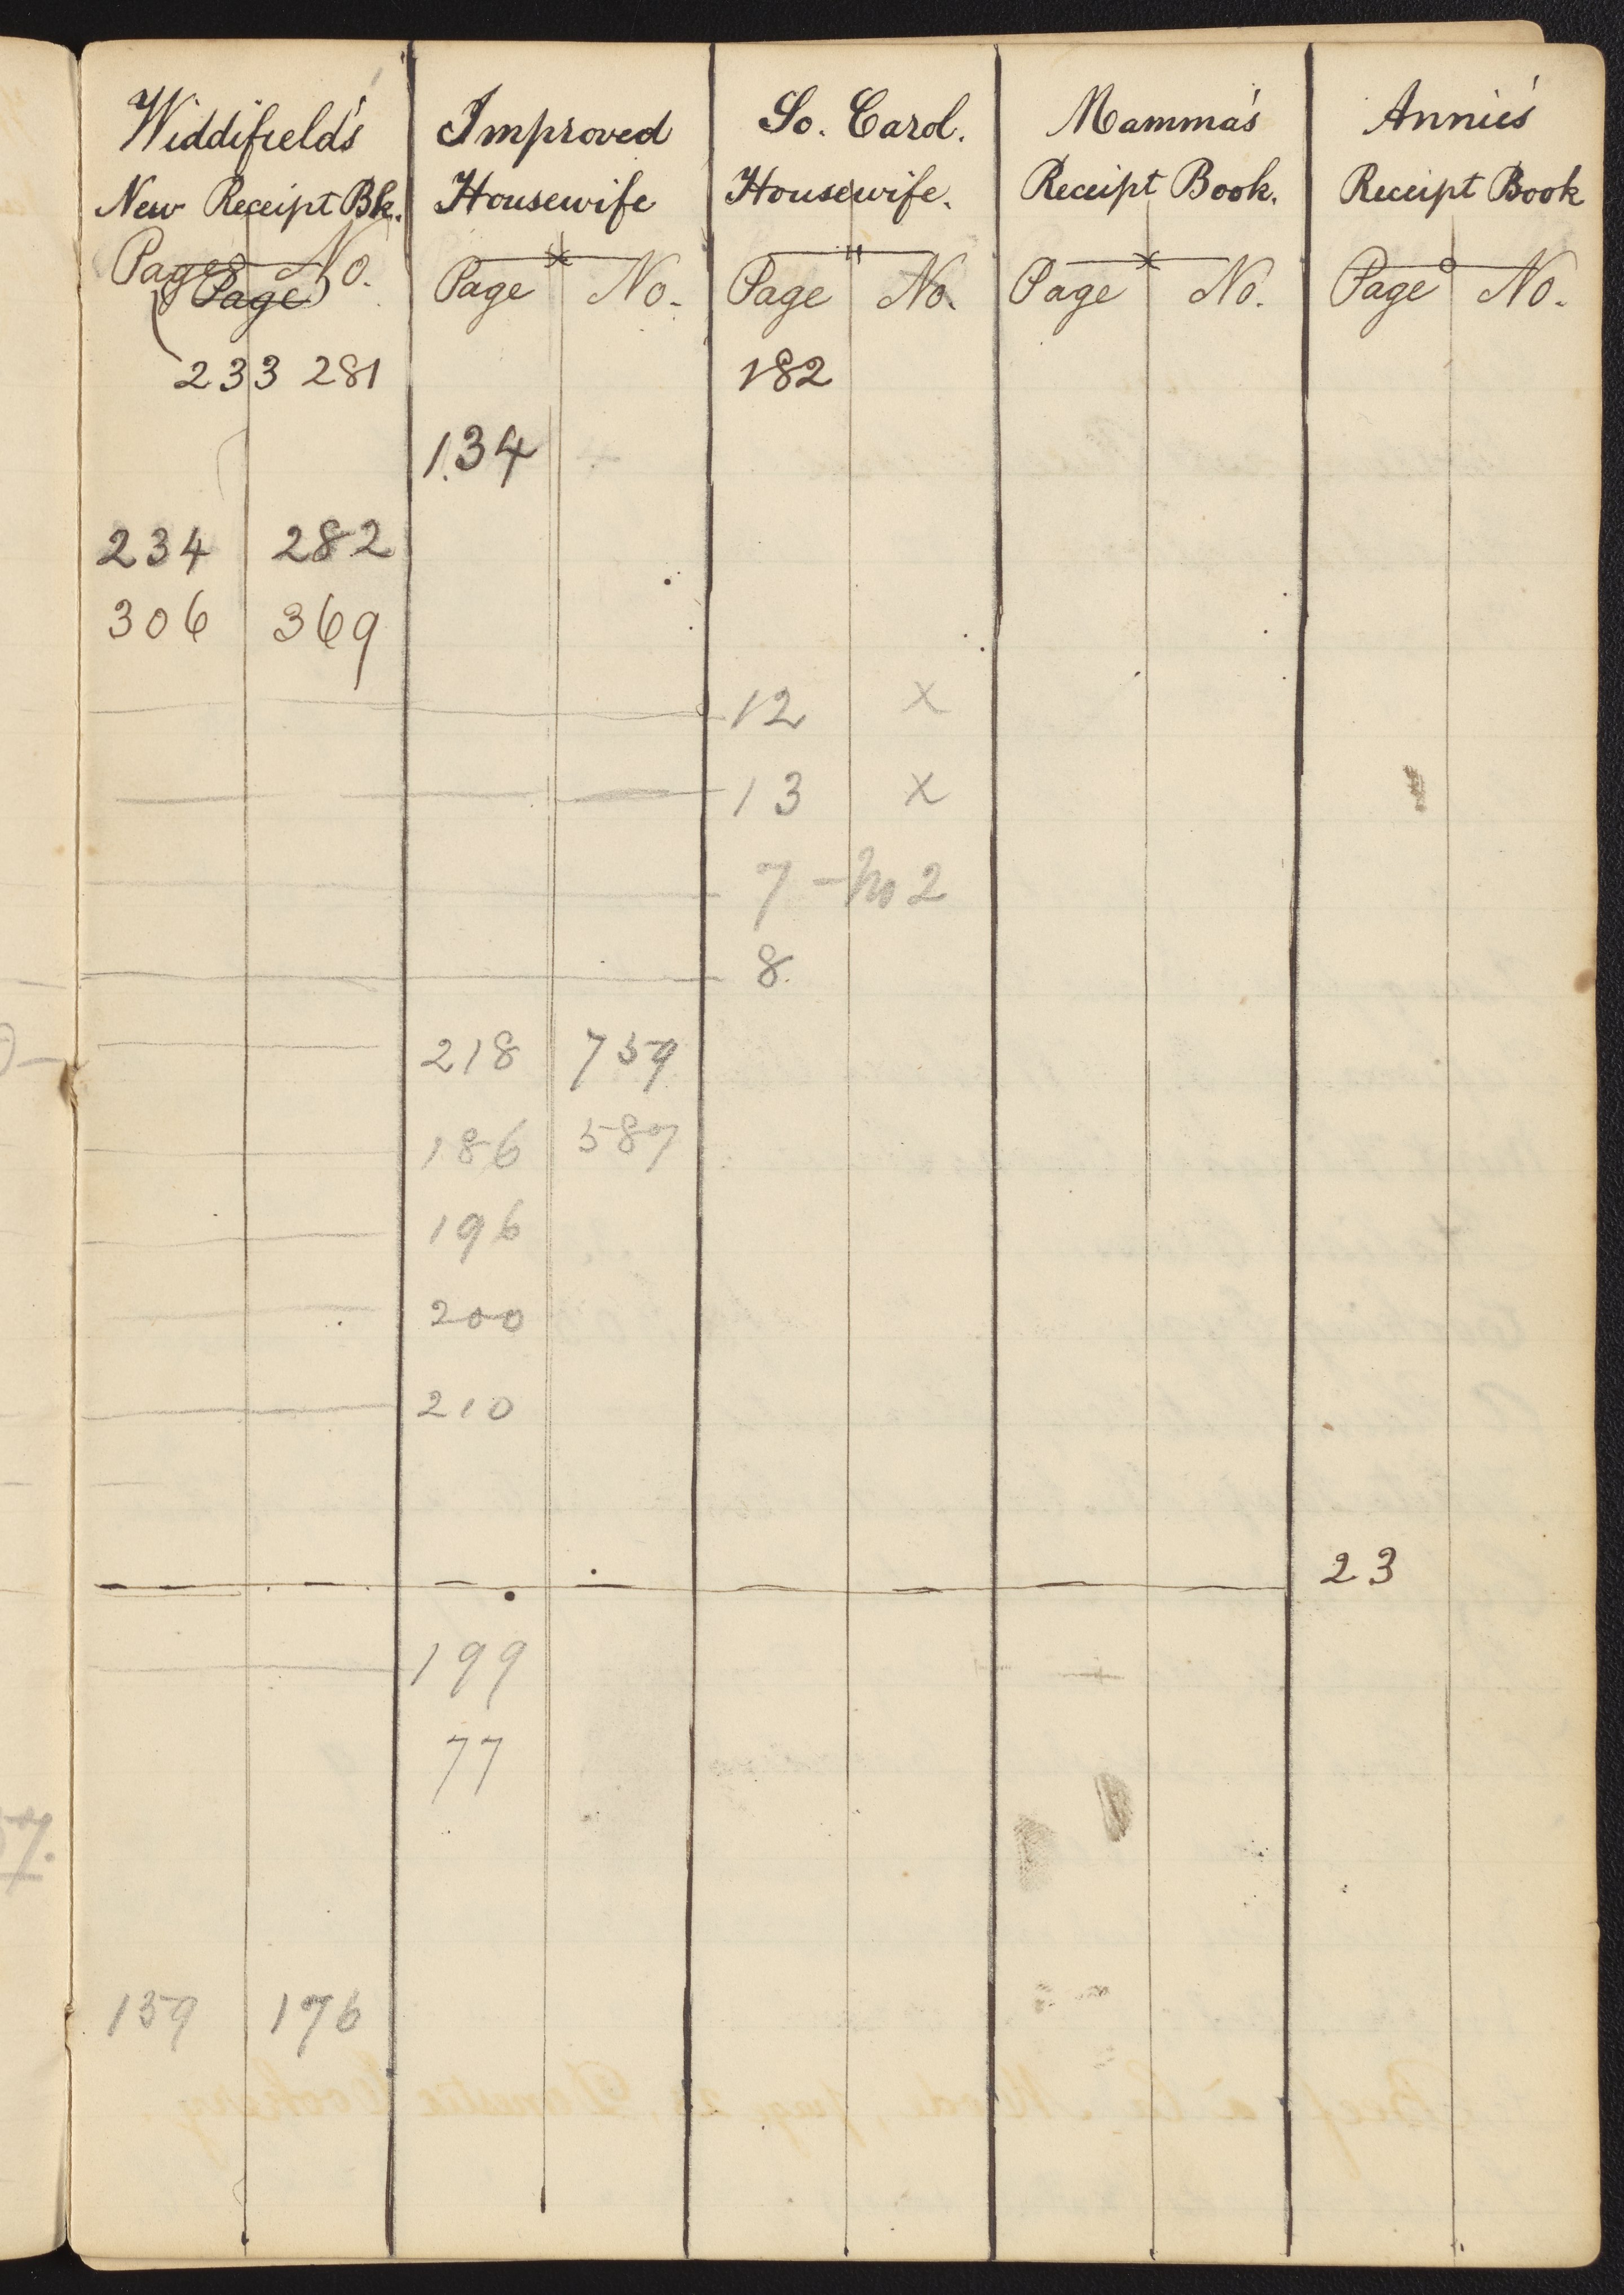 Widdifield's Improved So. Carol. Mamma's Annie's
New Receipt Bk. Housewife Housewife. Receipt Book. Receipt Book
Page No. Page No. Page No. Page No. Page No.
Page
233 281 182
134
234 282
306 369
12 x
13 x
7 - No 2
8.
218 759
186 587
196
200
210
23
199
77
159 176